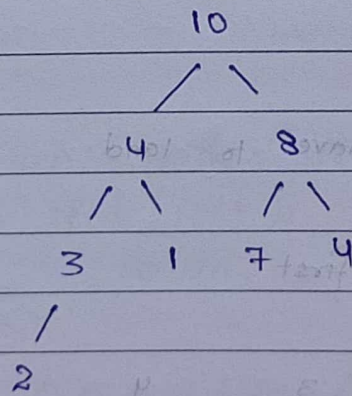 10
4 8
3 1 7 4
2